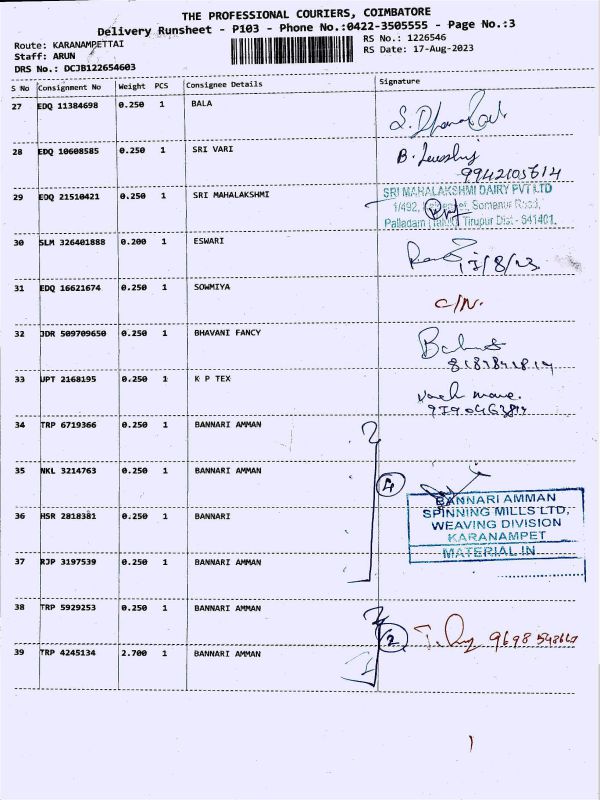 THE PROFESSIONAL COURIERS, COIMBATORE
Delivery Runsheet - P103 - Phone No.:0422-3505555 - Page No.:3
Route: KARANAMPETTAI
RS No.: 1226546
Staff: ARUN
RS Date: 17-Aug-2023
DRS No.: DCJB122654603
S No Consignment No Weight PCS Consignee Details Signature
27 EDQ 11384698 0.250 1 BALA
28 EDQ 10608585 0.250 1 SRI VARI
9942105614
29 EDQ 21510421 0.250 1 SRI MAHALAKSHMI
SRI MAHALAKSHMI DAIRY PVT LTD
1/492, Somanur Road,
Palladam (Taluk) Tirupur Dist - 641401.
30 SLM 326401888 0.200 1 ESWARI
17/8/23
31 EDQ 16621674 0.250 1 SOWMIYA
C/N.
32 JDR 509709650 0.250 1 BHAVANI FANCY
33 UPT 2168195 0.250 1 K P TEX
34 TRP 6719366 0.250 1 BANNARI AMMAN
35 NKL 3214763 0.250 1 BANNARI AMMAN
4
36 HSR 2818381 0.250 1 BANNARI
BANNARI AMMAN
SPINNING MILLS LTD,
WEAVING DIVISION
KARANAMPET
MATERIAL IN
37 RJP 3197539 0.250 1 BANNARI AMMAN
38 TRP 5929253 0.250 1 BANNARI AMMAN
2
39 TRP 4245134 2.700 1 BANNARI AMMAN